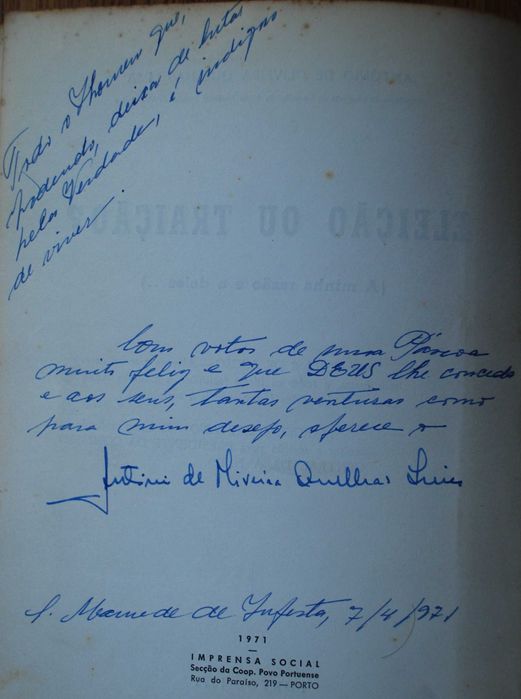 Todo o Homem que,
podendo, deixa de lutar
pela Verdade, é indigno
de viver.
ELEIÇÃO OU TRAIÇÃO?
(A minha razão e o dolo
Com votos de uma Páscoa
muito feliz e que DEUS lhe conceda
e aos seus, tantas venturas como
para mim desejo, oferece o
António de Oliveira Quelhas
S. Mamede de Infesta, 7/4/971
1971
—
IMPRENSA SOCIAL
Secção da Coop. Povo Portuense
Rua do Paraíso, 219 — PORTO